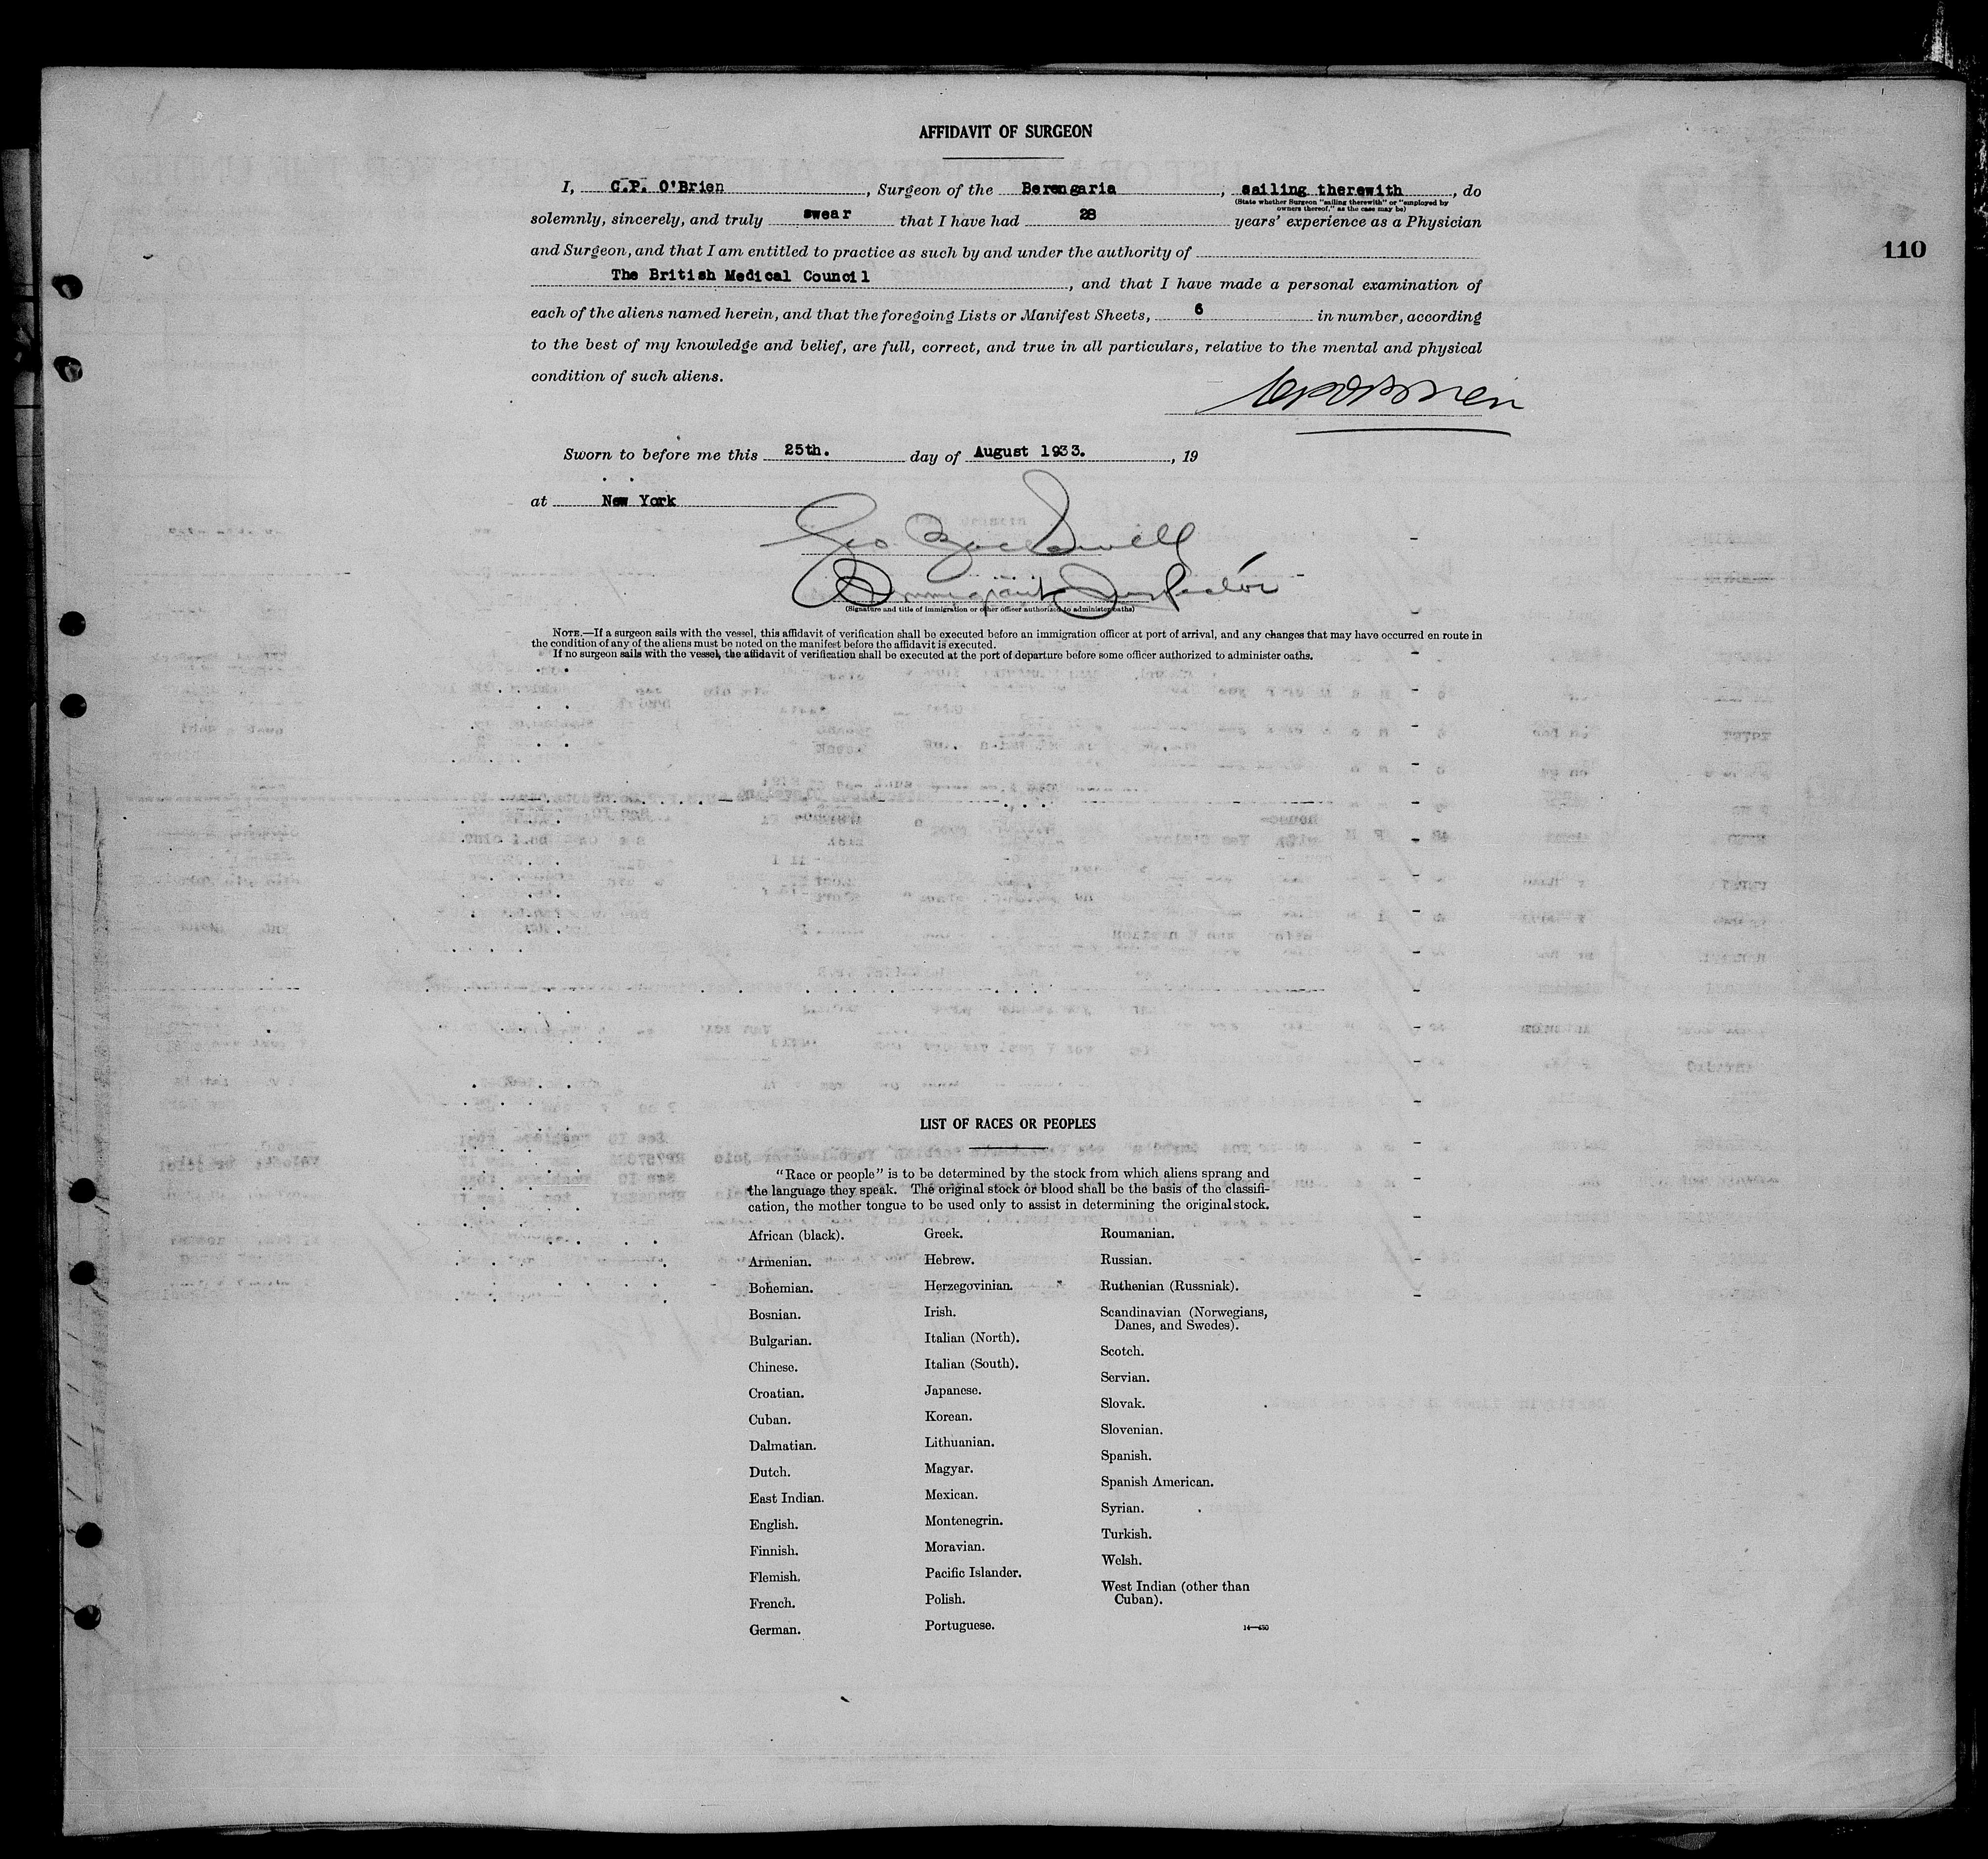 AFFIDAVIT OF SURGEON
I, C.P. O'Brien, Surgeon of the Berengaria, sailing therewith, do
(State whether Surgeon "sailing therewith" or "employed by
owners thereof," as the case may be)
solemnly, sincerely, and truly swear that I have had 28 years' experience as a Physician
and Surgeon, and that I am entitled to practice as such by and under the authority of
110
The British Medical Council, and that I have made a personal examination of
each of the aliens named herein, and that the foregoing Lists or Manifest Sheets, 6 in number, according
to the best of my knowledge and belief, are full, correct, and true in all particulars, relative to the mental and physical
condition of such aliens.
CPO'Brien
Sworn to before me this 25th. day of August 1933., 19
at New York
Geo
Immigrant Inspector
(Signature and title of immigration or other officer authorized to administer oaths)
NOTE.—If a surgeon sails with the vessel, this affidavit of verification shall be executed before an immigration officer at port of arrival, and any changes that may have occurred en route in
the condition of any of the aliens must be noted on the manifest before the affidavit is executed.
If no surgeon sails with the vessel, the affidavit of verification shall be executed at the port of departure before some officer authorized to administer oaths.
LIST OF RACES OR PEOPLES
"Race or people" is to be determined by the stock from which aliens sprang and
the language they speak. The original stock or blood shall be the basis of the classifi-
cation, the mother tongue to be used only to assist in determining the original stock.
African (black).
Armenian.
Bohemian.
Bosnian.
Bulgarian.
Chinese.
Croatian.
Cuban.
Dalmatian.
Dutch.
East Indian.
English.
Finnish.
Flemish.
French.
German.
Greek.
Hebrew.
Herzegovinian.
Irish.
Italian (North).
Italian (South).
Japanese.
Korean.
Lithuanian.
Magyar.
Mexican.
Montenegrin.
Moravian.
Pacific Islander.
Polish.
Portuguese.
Roumanian.
Russian.
Ruthenian (Russniak).
Scandinavian (Norwegians,
Danes, and Swedes).
Scotch.
Servian.
Slovak.
Slovenian.
Spanish.
Spanish American.
Syrian.
Turkish.
Welsh.
West Indian (other than
Cuban).
14—430